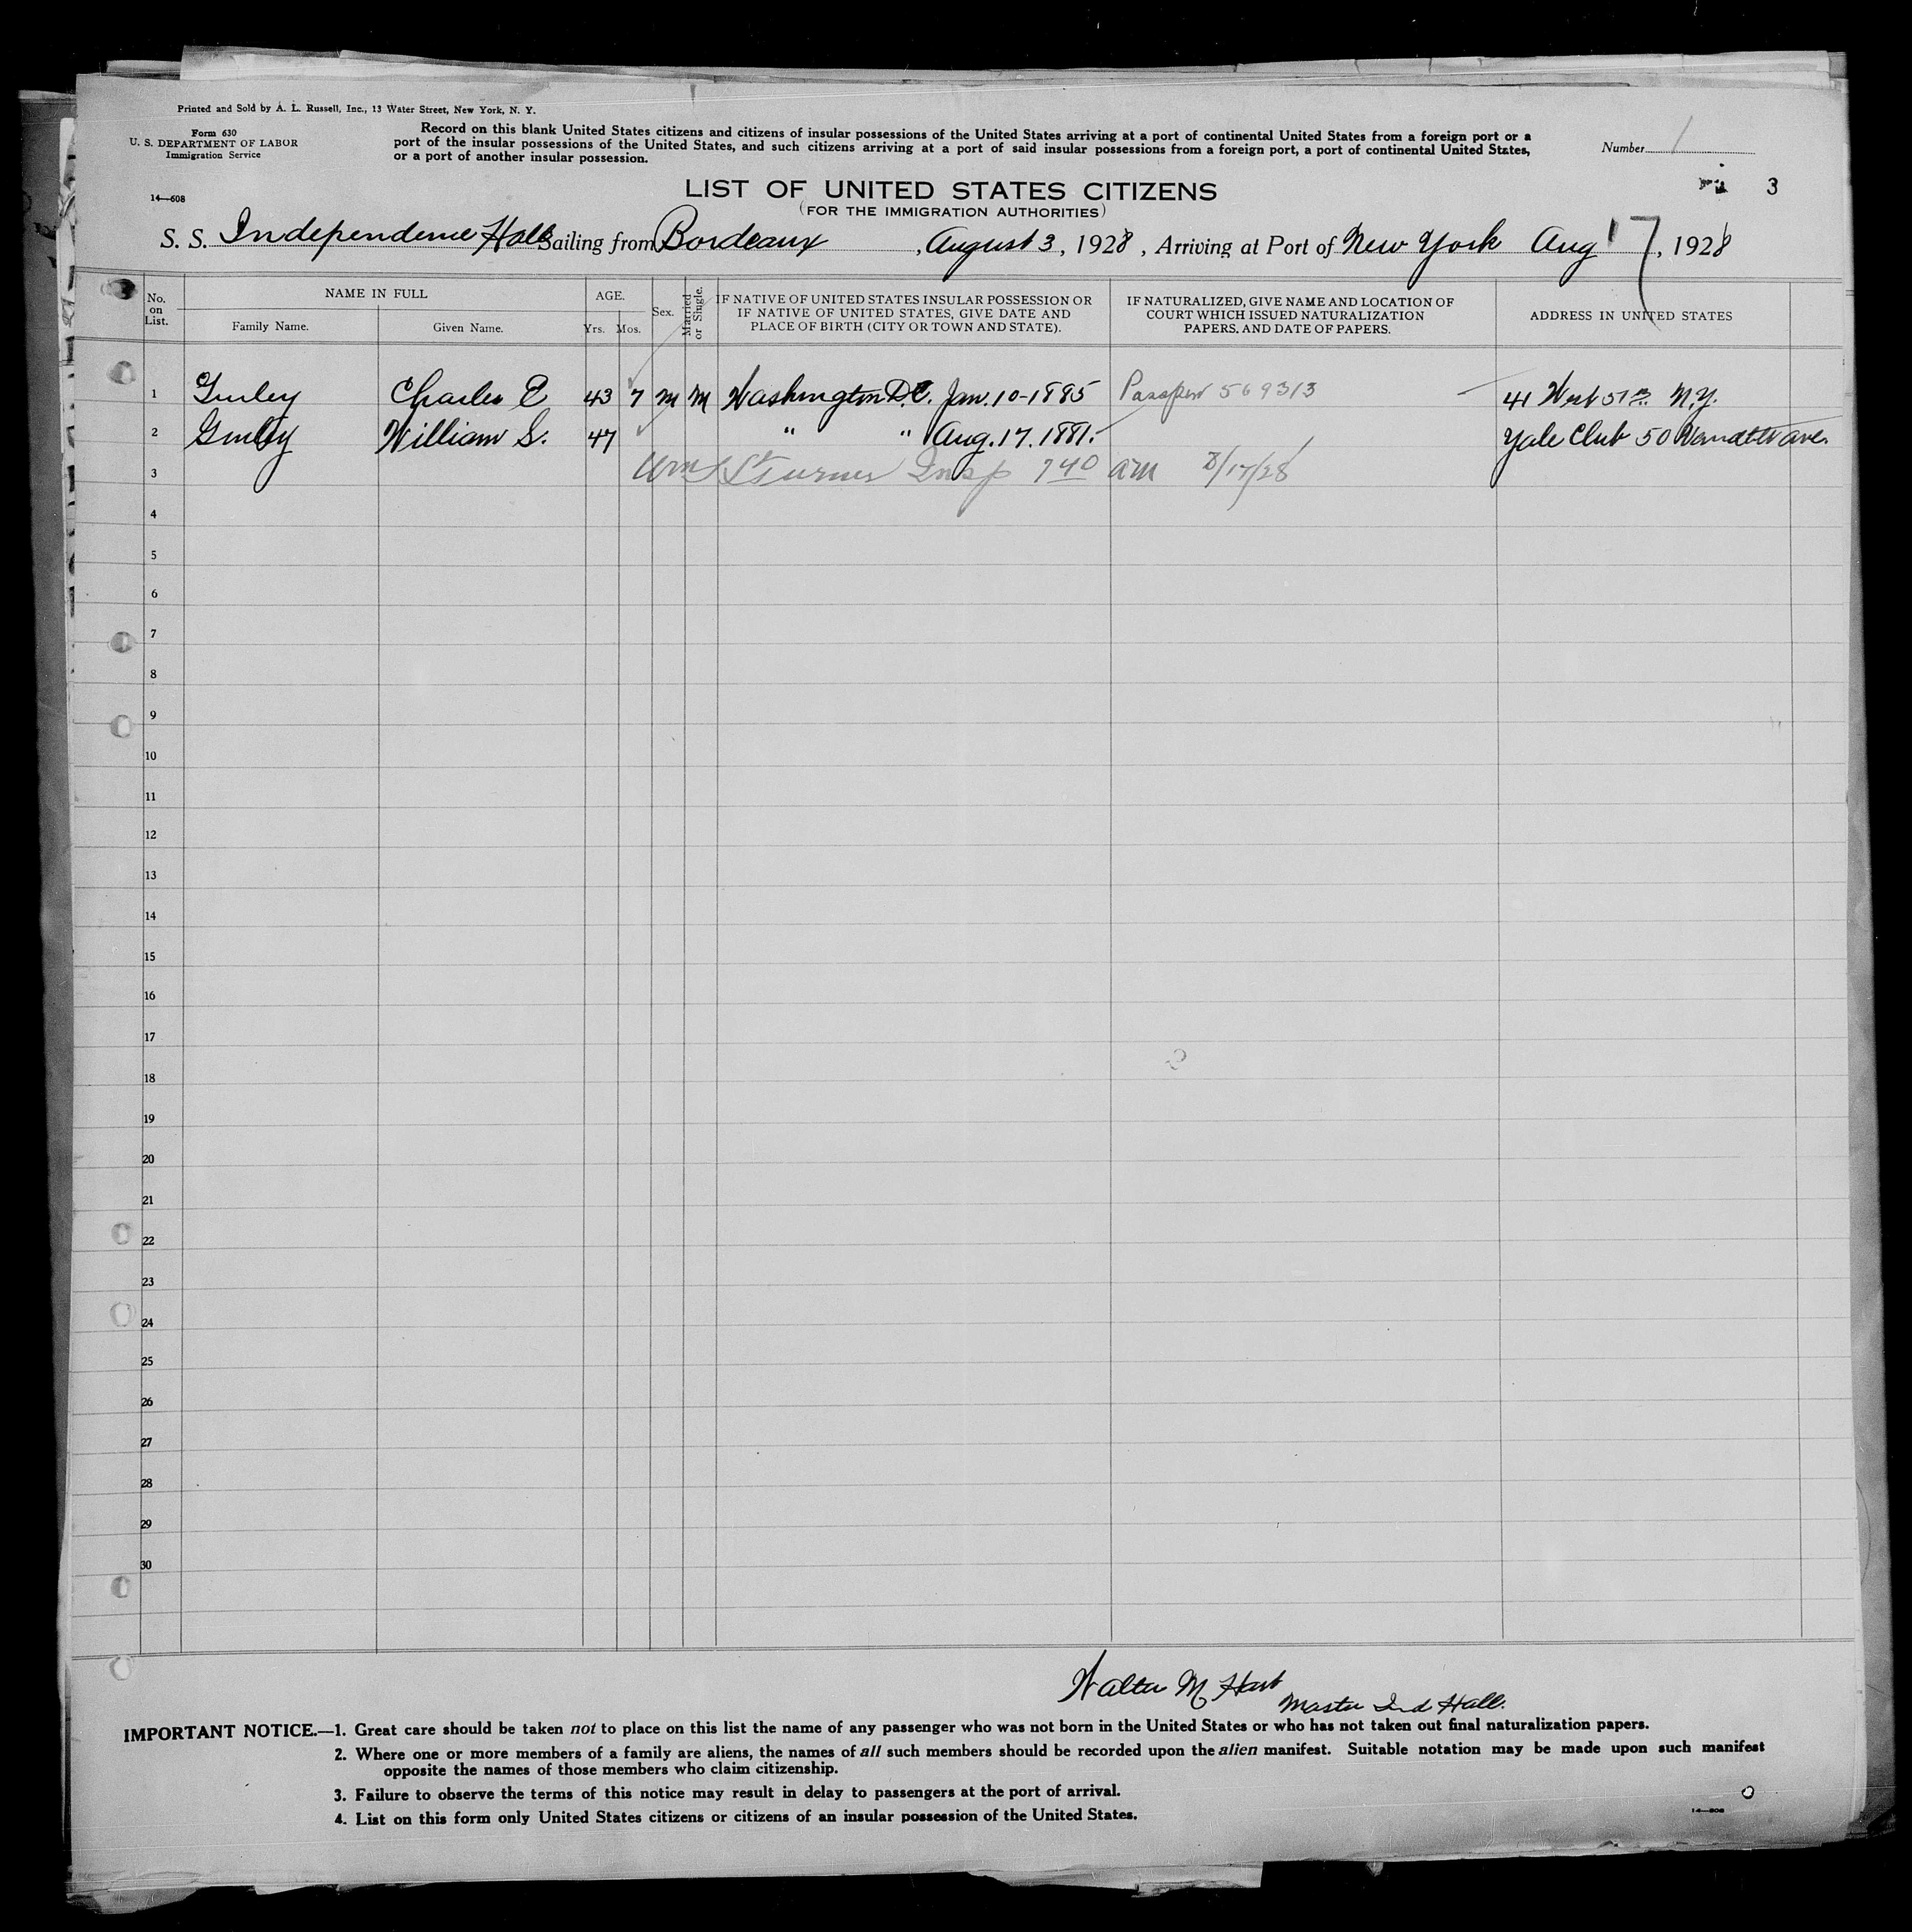 Printed and Sold by A. L. Russell, Inc., 13 Water Street, New York, N. Y.
Form 630
U. S. DEPARTMENT OF LABOR
Immigration Service
Record on this blank United States citizens and citizens of insular possessions of the United States arriving at a port of continental United States from a foreign port or a
port of the insular possessions of the United States, and such citizens arriving at a port of said insular possessions from a foreign port, a port of continental United States,
or a port of another insular possession.
Number 1
3
14—608
LIST OF UNITED STATES CITIZENS
(FOR THE IMMIGRATION AUTHORITIES)
S. S. Independence Hall Sailing from Bordeaux, August 3, 1928, Arriving at Port of New York Aug 17, 1928
No. on List.
NAME IN FULL
Family Name. Given Name.
AGE.
Yrs. Mos.
Sex.
Married or Single.
IF NATIVE OF UNITED STATES INSULAR POSSESSION OR
IF NATIVE OF UNITED STATES, GIVE DATE AND
PLACE OF BIRTH (CITY OR TOWN AND STATE).
IF NATURALIZED, GIVE NAME AND LOCATION OF
COURT WHICH ISSUED NATURALIZATION
PAPERS, AND DATE OF PAPERS.
ADDRESS IN UNITED STATES
1 Charles C 43 7 M M Washington D.C. Jan. 10-1885 Passport 569313 41 West 57th N.Y.
2 William S. 47 " " Aug. 17. 1881. Yale Club 50 ave.
3 Wm Turner Insp 7 40 am 8/17/28
4
5
6
7
8
9
10
11
12
13
14
15
16
17
18
19
20
21
22
23
24
25
26
27
28
29
30
Walter M Hart
Master Ind Hall.
IMPORTANT NOTICE.—1. Great care should be taken not to place on this list the name of any passenger who was not born in the United States or who has not taken out final naturalization papers.
2. Where one or more members of a family are aliens, the names of all such members should be recorded upon the alien manifest. Suitable notation may be made upon such manifest
opposite the names of those members who claim citizenship.
3. Failure to observe the terms of this notice may result in delay to passengers at the port of arrival.
4. List on this form only United States citizens or citizens of an insular possession of the United States.
14—608